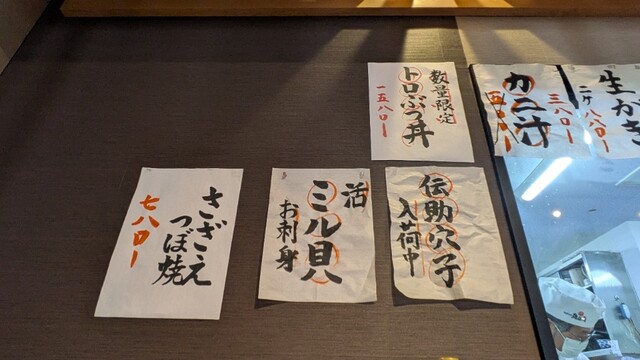 数量限定
トロぶつ丼
一五八〇ー
カニ汁
三八〇ー
生かき
二ケ八八〇ー
伝助穴子
入荷中
活
ミル貝
お刺身
さざえ
つぼ焼
七八〇ー